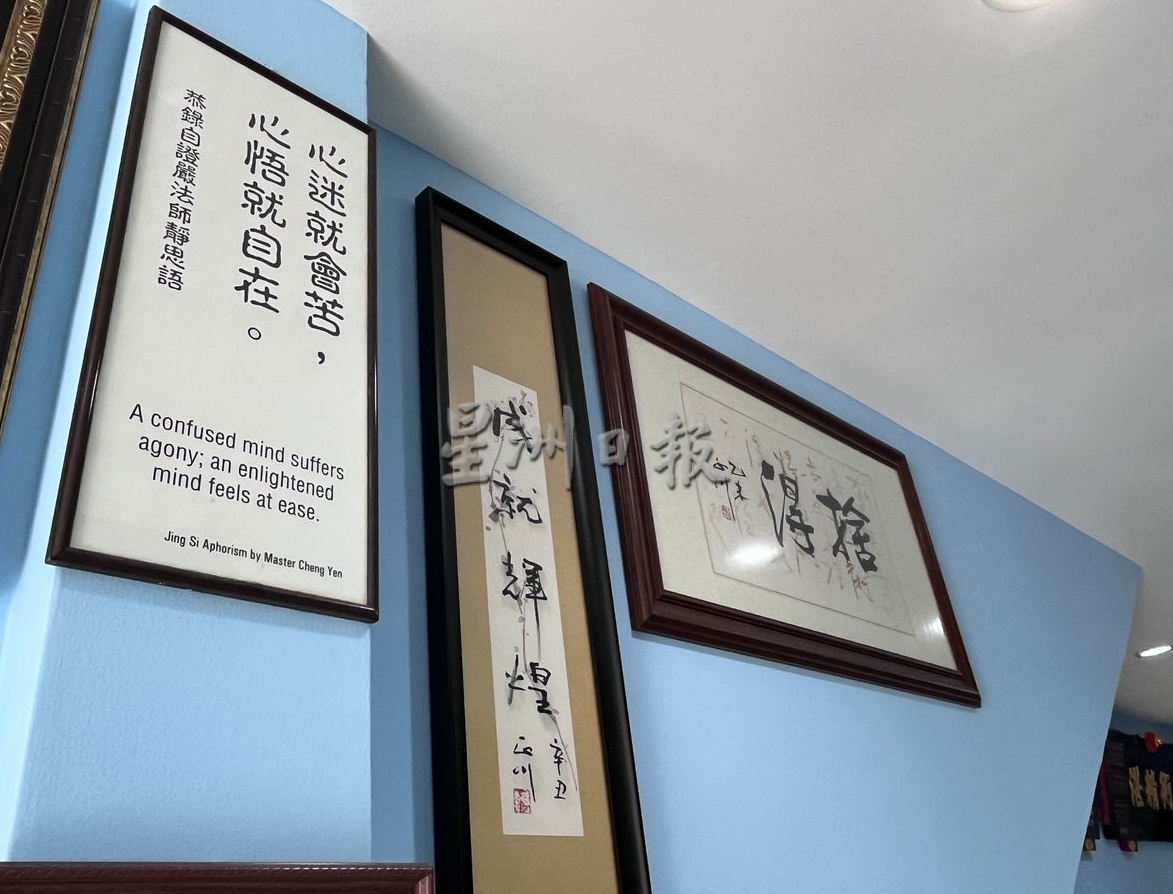 心迷就會苦，
心悟就自在。
恭錄自證嚴法師靜思語
A confused mind suffers
agony; an enlightened
mind feels at ease.
Jing Si Aphorism by Master Cheng Yen
成就輝煌
辛丑
捨得
星洲日報